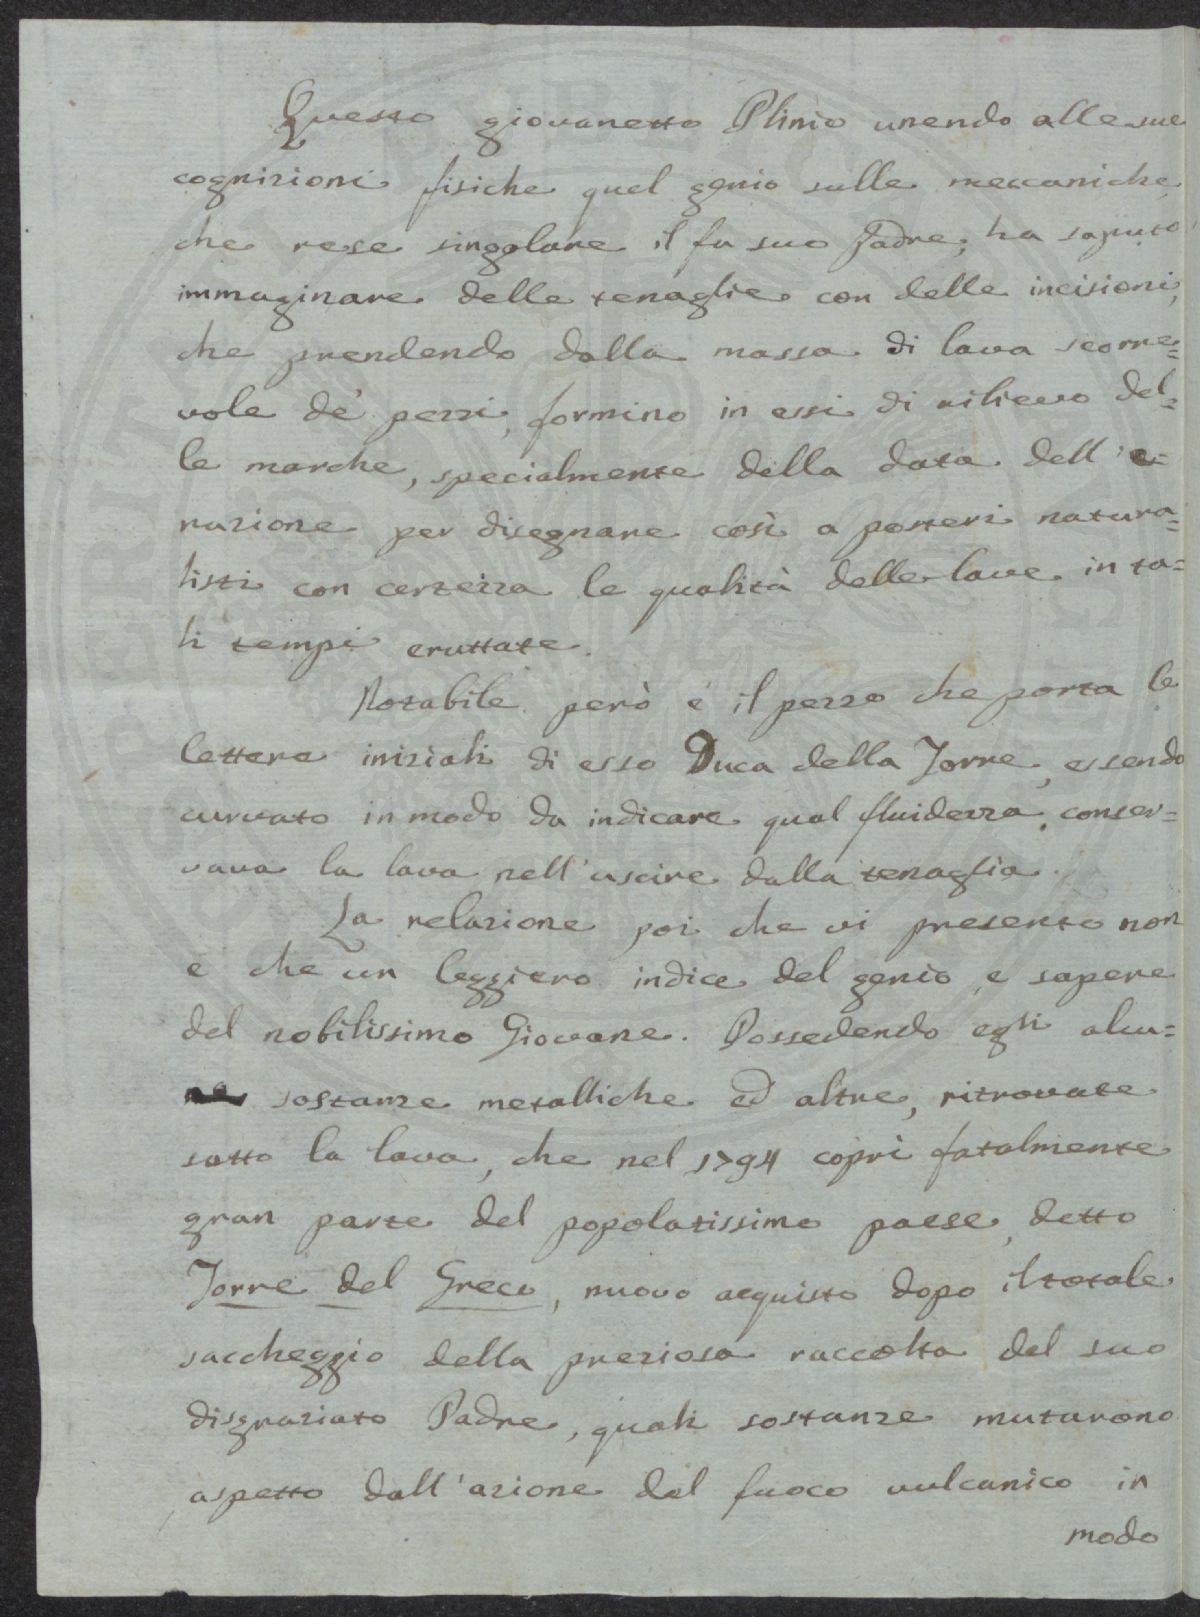 Questo giovanetto Plinio unendo alle sue
cognizioni fisiche quel genio sulle meccaniche,
che rese singolare il fu suo Padre, ha saputo
immaginare delle tenaglie con delle incisioni,
che prendendo dalla massa di lava scorre=
vole de' pezzi, formino in essi di rilievo del=
le marche, specialmente della data dell' e=
ruzione per disegnare così a posteri natura=
listi con certezza le qualità delle lave in ta=
li tempi eruttate.
Notabile però è il pezzo che porta le
lettere iniziali di esso Duca della Torre, essendo
curvato in modo da indicare qual fluidezza conser=
vava la lava nell'uscire dalla tenaglia.
La relazione poi che vi presento non
e che un leggiero indice del genio, e sapere
del nobilissimo Giovane. Possedendo egli alcu=
ne sostanze metalliche ed altre, ritrovate
sotto la lava, che nel 1794 coprì fatalmente
gran parte del popolatissimo paese, detto
Torre del Greco, nuovo acquisto dopo il totale
saccheggio della preziosa raccolta del suo
disgraziato Padre, quali sostanze mutarono
aspetto dall'azione del fuoco vulcanico in
modo